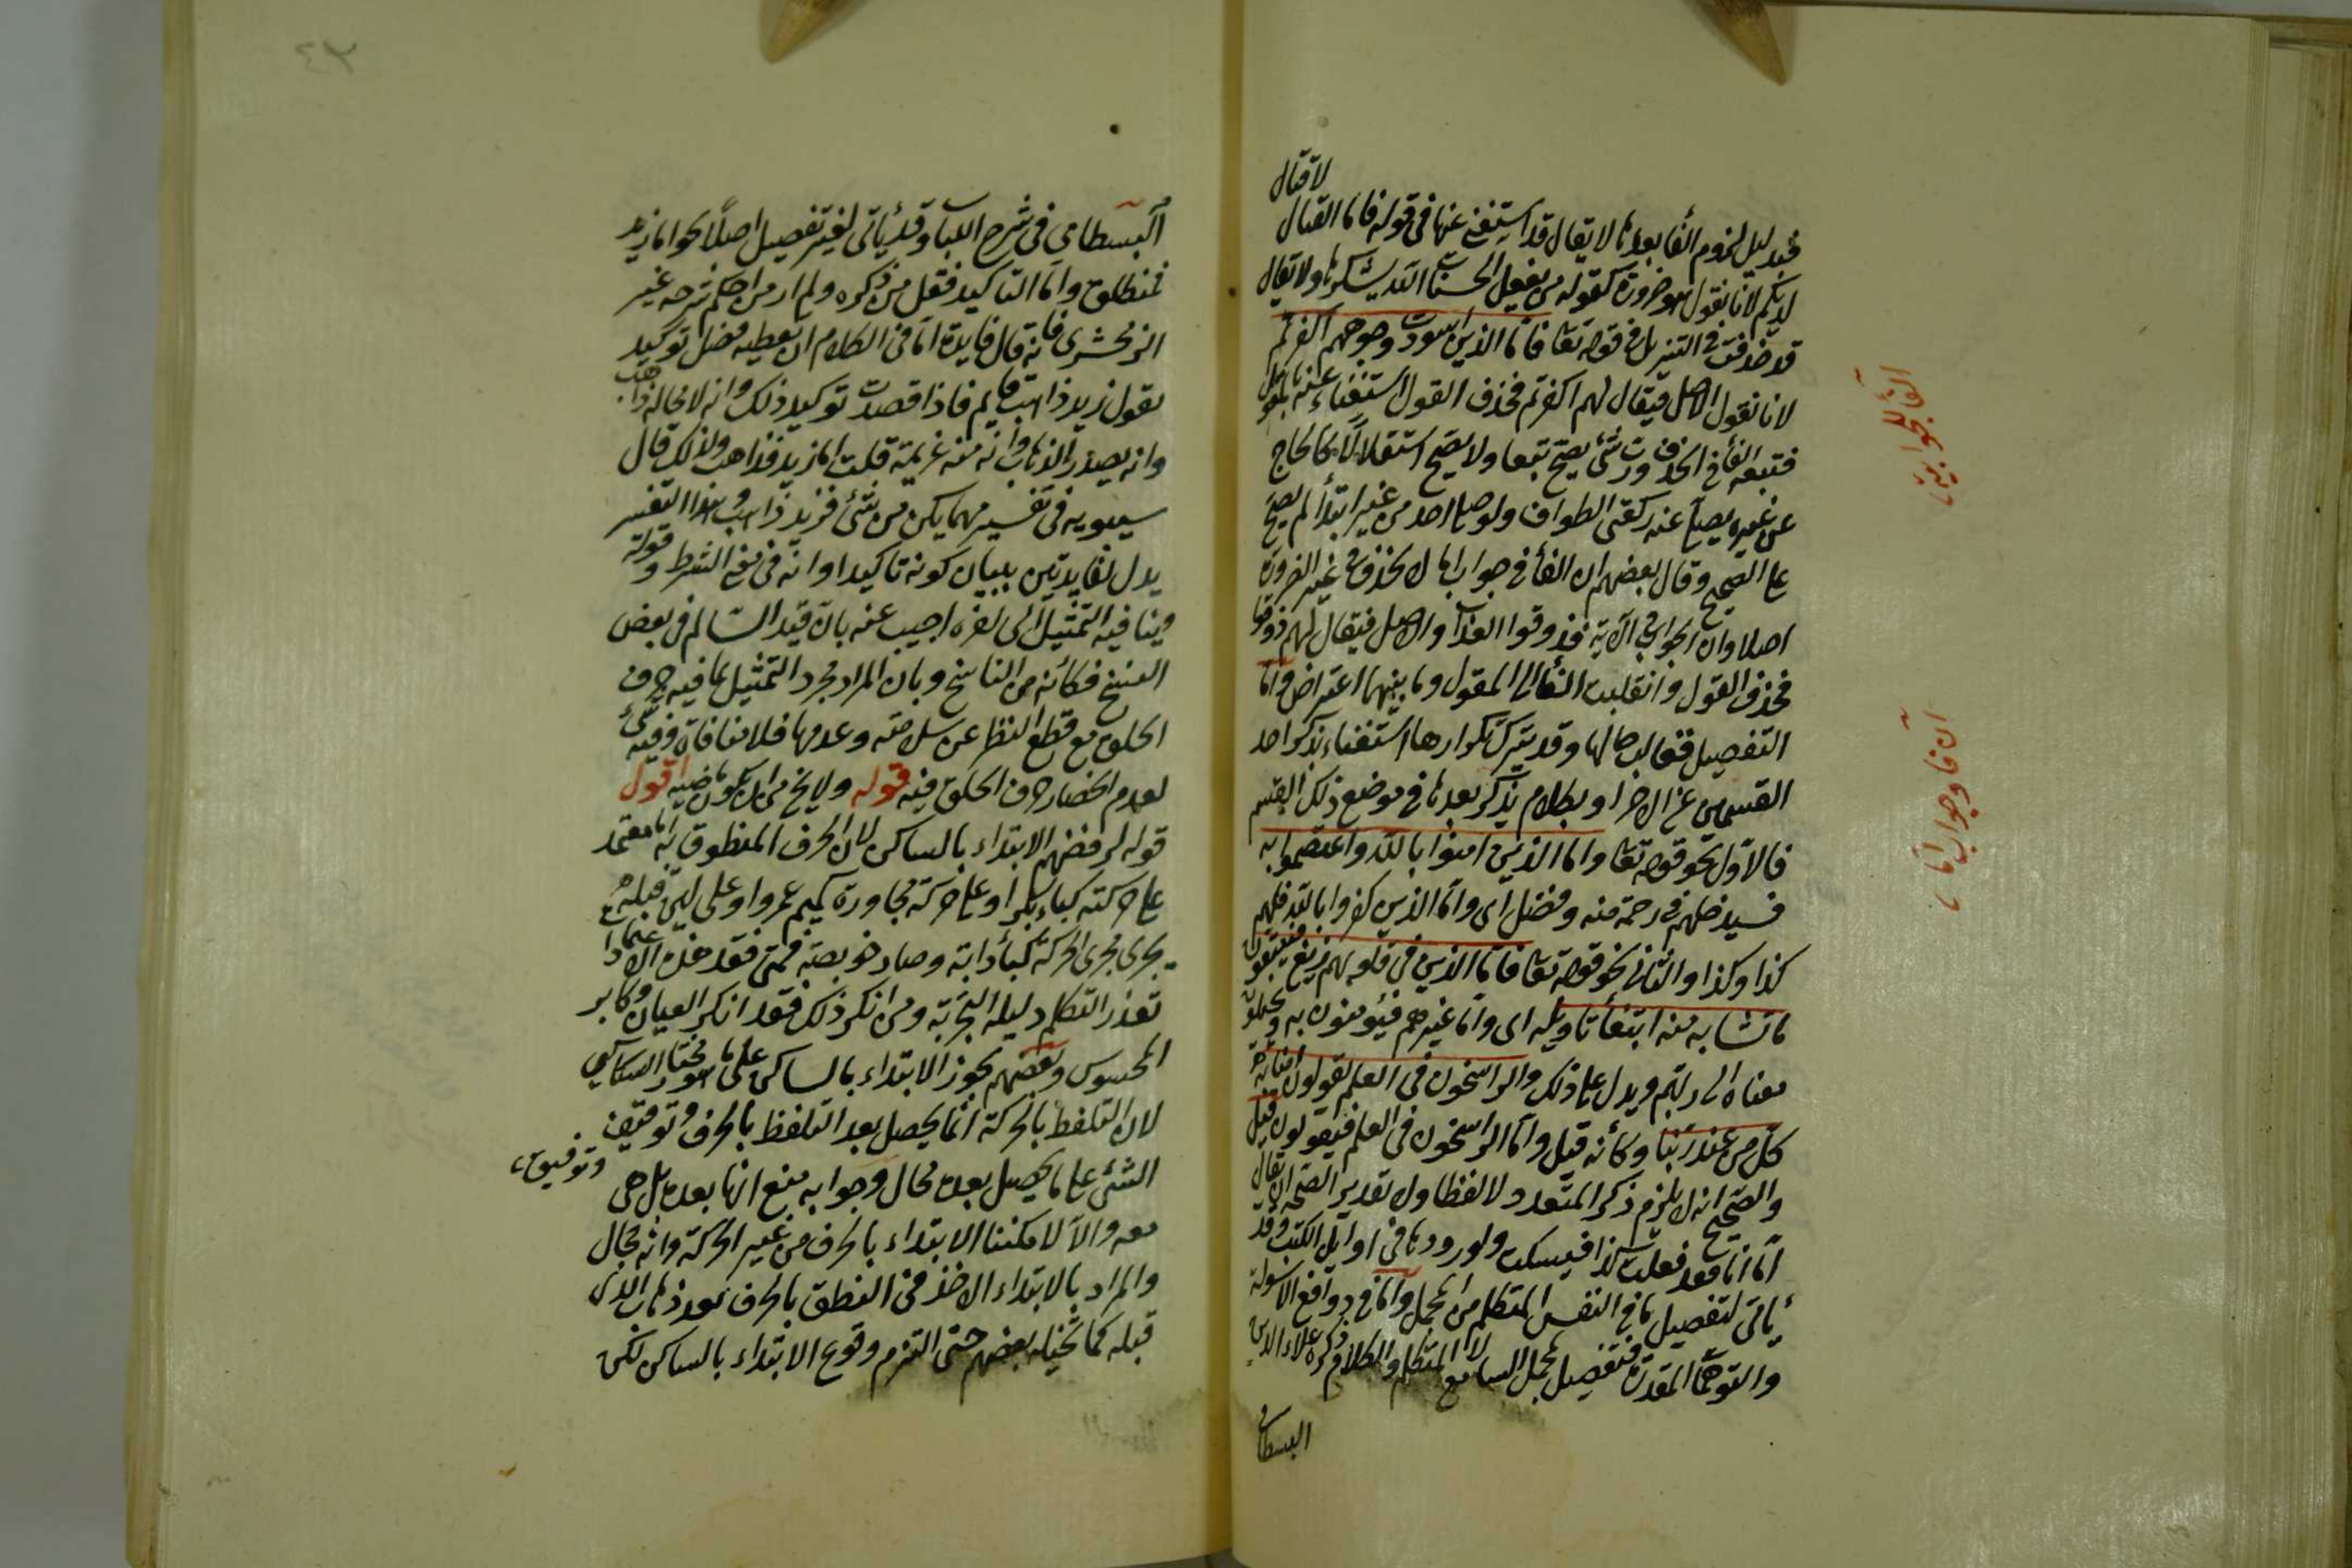 لا قتال
فبدليل لزوم الفا بعدها لا يقال قد استغنى عنها في قوله فاما القتال
لديكم لانا نقول هو ضرورة كقوله من يفعل الحسنات الله يشكرها ولا يقال
قد حذفت في التنزيل في قوله تعا فاما الذين اسودت وجوههم اكفرتم
لانا نقول الاصل فيقال لهم اكفرتم فحذف القول استغناء عنه بالمقول
فتبعه الفأ في الحذف ورب شئ يصح تبعا ولا يصح استقلالا كالحاج
عن غيره يصلي عنه ركعتى الطواف ولو صلى احد من غير ابتدأ لم يصح
على الصحيح وقال بعضهم ان الفأ في جواب اما لا يحذف في غير الضرورة
اصلا وان الجواب في الآية فذوقوا العذاب والاصل فيقال لهم ذوقوا
فحذف القول وانقلبت الفأ الى المقول وما بينهما اعتراض واما
التفصيل فغالب حالها وقد يترك تكرارها استغناء بذكر احد
القسمين عن الاخر او بكلام يذكر بعدها في موضع ذلك القسم
فالاول نحو قوله تعا واما الذين امنوا بالله واعتصموا به
فسيدخلهم في رحمة منه وفضل اى واما الذين كفروا بالله فلهم
كذا وكذا والثاني نحو قوله تعا فاما الذين في قلوبهم زيغ فيتبعون
ما تشابه منه ابتغأ تاويله اى واما غيرهم فيؤمنون به ويكلون
معناه الى ربهم ويدل على ذلك والراسخون في العلم يقولون امنا به
كل من عند ربنا وكأنه قيل واما الراسخون في العلم فيقولون قيل
والصحيح انه لا يلزم ذكر المتعدد لا لفظا ولا تقديرا لصحة ان يقال
اما انا فقد فعلت كذا فيسكت ولورودها في اوايل الكتب وقد
يأتى لتفصيل ما في النفس المتكلم من المجمل واما في دوافع الاسولة
والتوهمأ المقدرة فتفصيل مجمل السامع لا المتكلم والكلام ذكره علاء الدين
البسطامى
الفأ للجوابية
آن فا وجواب اما
البسطامي في شرح اللباب وقد يأتي لغير تفصيل اصلا نحو اما زيد
فمنطلق واما التاكيد فقل من ذكره ولم ار من احكم شرحه غير
الزمخشرى فانه قال فايدة اما في الكلام ان يعطيه فضل توكيد
يقول زيد ذاهب فاذا قصدت توكيد ذلك وانه لا محالة ذاهب
وانه بصدد الذهاب وانه منه عزيمة قلت اما زيد فذاهب ولذلك قال
سيبويه في تفسير مهما يكن من شئ فزيد ذاهب وهذا التفسير
يدل لفايدتين بيان كونه تاكيدا وانه في معنى الشرط قوله
وينافيه التمثيل اجيب عنه بان قيد السالم في بعض
النسخ فكانه من الناسخ وبان المراد مجرد التمثيل بما فيه حرف
الحلق مع قطع النظر عن سلامته وعدمها فلا منافاة وفيه شئ
لعدم انحصار حرف الحلق فيه قوله ولا يخ من ان يكون ماضيه اقول
قوله لرفضهم الابتداء بالساكن لان الحرف المنطوق به اما معتمد
على حركته كباء بكر او على حركة مجاوره كميم عمرو او على لين قبله
يجرى مجرى الحركة كبأ دابة وصاد خويصة فمتى فقد هذه الاعتمادا
تعذر التكلم دليله التجربة ومن انكر ذلك فقد انكر العيان وكابر
المحسوس وبعضهم يجوز الابتداء بالساكن على ما هو مختار السكاكى
لان التلفظ بالحركة انما يحصل بعد التلفظ بالحرف وتوقيف
وتوقيف
الشئ على ما يحصل بعده محال وجوابه منع انها بعده بل هى
معه والا لامكننا الابتداء بالحرف من غير الحركة وانه محال
والمراد بالابتداء الاخذ في النطق بالحرف بعد ذهاب الذى
قبله كما تخيله بعضهم حتى التزم وقوع الابتداء بالساكن لكن